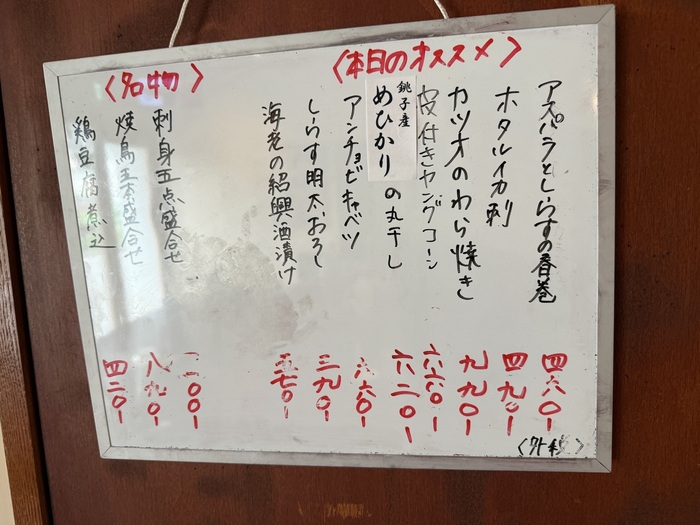 〈本日のオススメ〉
アスパラとしらすの春巻 四六〇-
ホタルイカ刺 四九〇-
カツオのわら焼き 九九〇-
皮付きヤングコーン
銚子産
めひかりの丸干し 六二〇-
アンチョビキャベツ
しらす明太おろし 三九〇-
海老の紹興酒漬け 五七〇-
〈名物〉
刺身五点盛合せ
焼鳥五本盛合せ 八九〇-
鶏豆腐煮込 四二〇-
〈外税〉